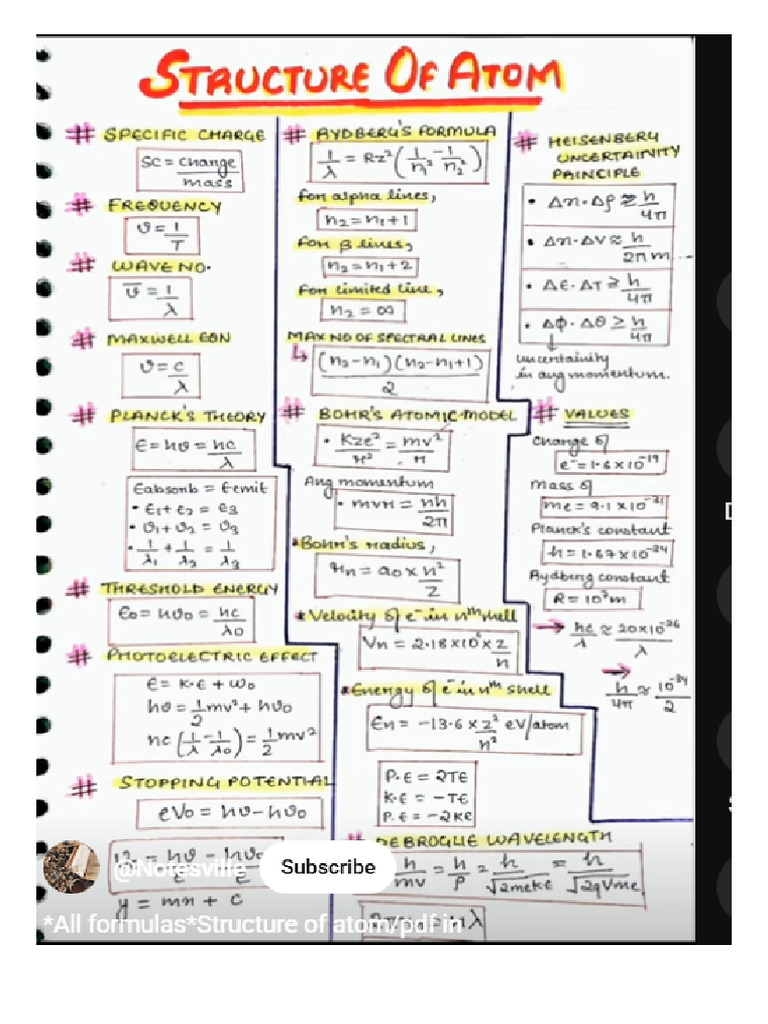 STRUCTURE OF ATOM
# SPECIFIC CHARGE
SC = charge/mass
# FREQUENCY
ϑ = 1/T
# WAVE NO.
ϑ̅ = 1/λ
# MAXWELL EQN
ϑ = c/λ
# PLANCK'S THEORY
E = hϑ = hc/λ
Eabsorb = Eemit
• E₁ + E₂ = E₃
• ϑ₁ + ϑ₂ = ϑ₃
• 1/λ₁ + 1/λ₂ = 1/λ₃
# THRESHOLD ENERGY
E₀ = hϑ₀ = hc/λ₀
# PHOTOELECTRIC EFFECT
E = K.E + W₀
hϑ = 1/2 mv² + hϑ₀
hc (1/λ - 1/λ₀) = 1/2 mv²
# STOPPING POTENTIAL
eV₀ = hϑ - hϑ₀
y = mx + c
# RYDBERG'S FORMULA
1/λ = RZ² (1/n₁² - 1/n₂²)
for alpha lines,
n₂ = n₁ + 1
for β lines,
n₂ = n₁ + 2
for limited line,
n₂ = ∞
MAX NO OF SPECTRAL LINES
↳ (n₂ - n₁)(n₂ - n₁ + 1)/2
# BOHR'S ATOMIC MODEL
• Kze²/r² = mv²/r
Ang momentum
• mvr = nh/2π
* Bohr's radius,
rn = a₀ × n²/Z
* Velocity of e⁻ in nth shell
Vn = 2.18 × 10⁶ × Z/n
* Energy of e⁻ in nth shell
En = -13.6 × Z²/n² eV/atom
P.E = 2TE
K.E = -TE
P.E = -2KE
# DEBROGLIE WAVELENGTH
h/mv = h/p = h/√2meKE = h/√2qVme
2πr = nλ
# HEISENBERG
UNCERTAINITY
PRINCIPLE
• Δx·Δp ≥ h/4π
• Δx·Δv ≈ h/2πm
• ΔE·ΔT ≥ h/4π
• Δϕ·Δθ ≥ h/4π
↓
uncertainity
in ang momentum.
# VALUES
Charge of
e⁻ = 1.6 × 10⁻¹⁹
Mass of
me = 9.1 × 10⁻³¹
Planck's constant
h = 1.67 × 10⁻³⁴
Rydberg constant
R = 10⁷ m
→ hc/λ ≈ 20 × 10⁻²⁶/λ
→
h/4π ≈ 10⁻³⁴/2
@Notesville
Subscribe
*All formulas*Structure of atom/pdf in